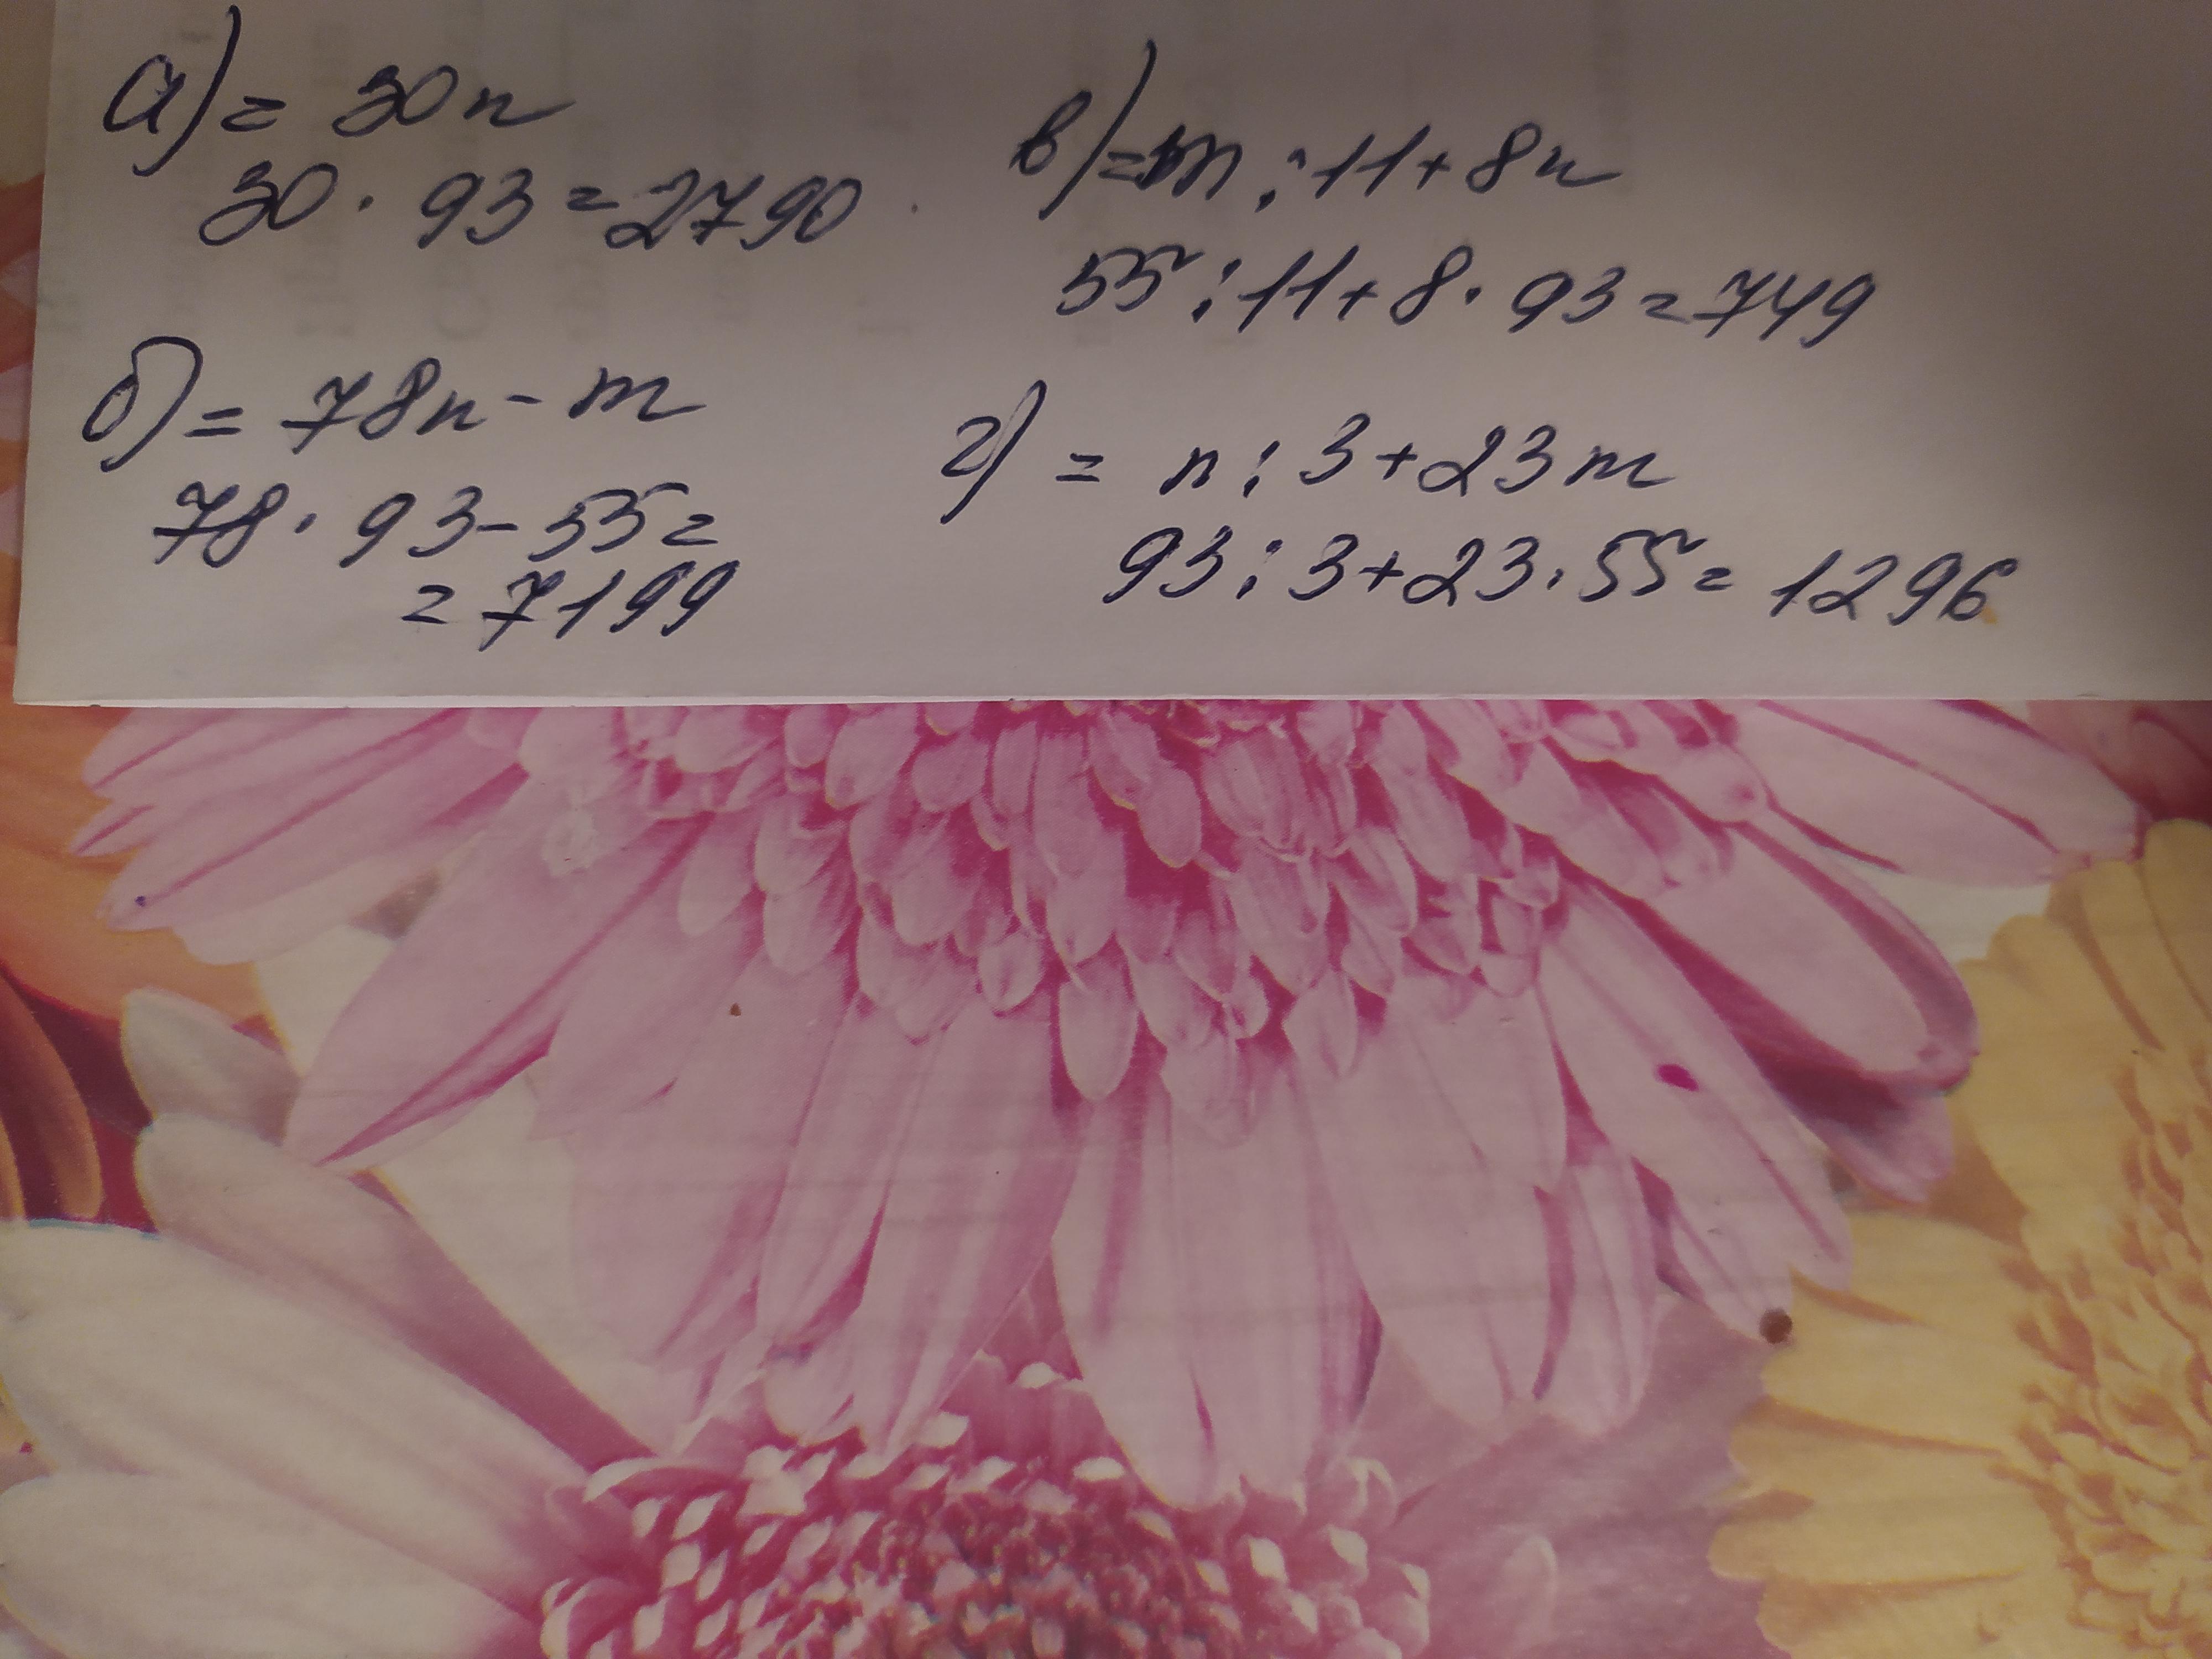 а) = 30n
30 · 93 = 2790
б) = 78n - m
78 · 93 - 55 =
= 7199
в) = m : 11 + 8n
55 : 11 + 8 · 93 = 749
г) = n : 3 + 23m
93 : 3 + 23 · 55 = 1296